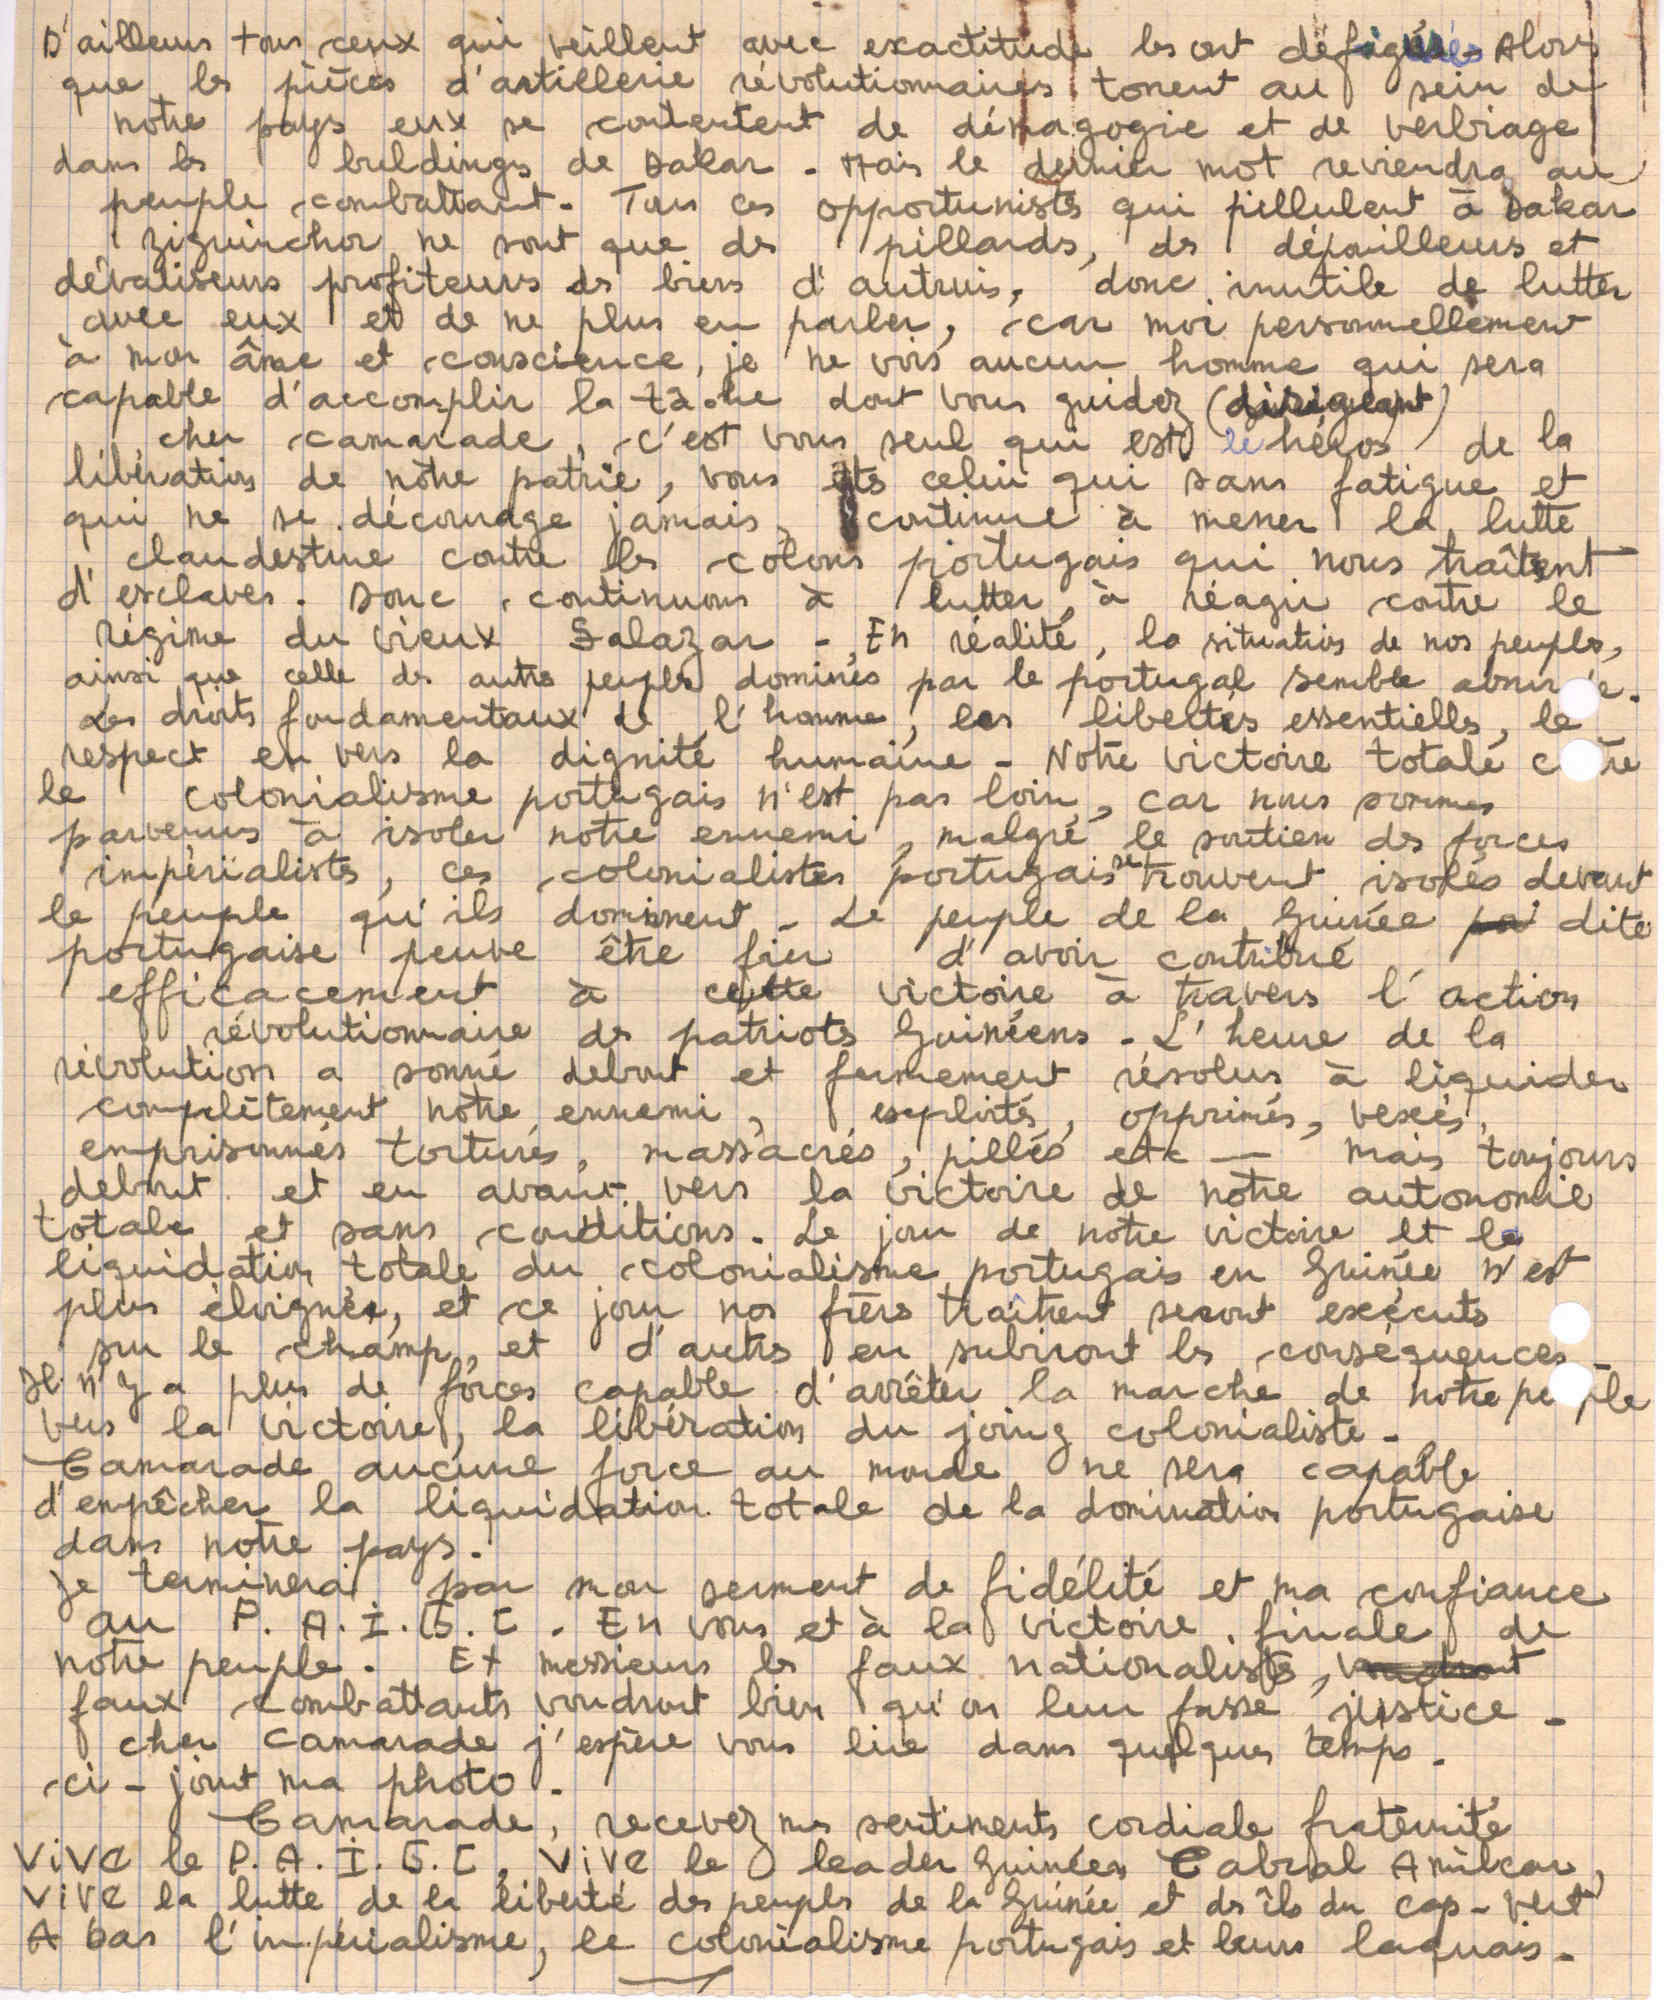 D'ailleurs tous ceux qui veillent avec exactitude les ont défigurés - Alors
que les pièces d'artillerie révolutionnaires tonent au sein de
notre pays eux se contentent de démagogie et de verbiage
dans les buldings de Dakar - Mais le dernier mot reviendra au
peuple combattant - Tous ces opportunistes qui pillulent à Dakar
Ziguinchor ne sont que des pillards, des dépouilleurs et
dévaliseurs profiteurs des biens d'autruis, donc inutile de lutter
avec eux et de ne plus en parler, car moi personnellement
à mon âme et conscience, je ne vois aucun homme qui sera
capable d'accomplir la tâche dont vous guidez (dirigeant)
cher camarade, c'est vous seul qui est le héros de la
libération de nôtre patrie, vous êtes celui qui sans fatigue et
qui ne se décourage jamais, continue à mener la lutte
clandestine contre les colons portugais qui nous traîtent
d'esclaves. Donc continuons à lutter, à réagir contre le
régime du vieux Salazar - En réalité, la situation de nos peuples,
ainsi que celle des autres peuples dominés par le portugal semble
Les droits fondamentaux de l'homme, les libertés essentielles, le
respect en vers la dignité humaine - Notre victoire totale c tre
le colonialisme portugais n'est pas loin, car nous sommes
parvenus à isoler notre ennemi, malgré le soutien des forces
impérialistes, ces colonialistes portugais se trouvent isolés devant
le peuple qu'ils dominent - Le peuple de la Guinée dite
portugaise peuve être fier d'avoir contribué
efficacement à cette victoire à travers l'action
révolutionnaire des patriotes Guinéens - L'heure de la
révolution a sonné debout et fermement résolus à liquider
complètement notre ennemi, exploités, opprimés, vexés,
emprisonnés torturés, massacrés, pillés etc — mais toujours
debout et en avant vers la victoire de notre autonomie
totale et sans conditions. Le jour de notre victoire et la
liquidation totale du colonialisme portugais en Guinée n'est
plus éloignée, et ce jour nos frères traîtrent seront exécuts
sur le champ, et d'autres en subiront les conséquences -
Il n'y a plus de forces capable d'arrêter la marche de notre pe ple
vers la victoire, la libération du joing colonialiste -
Camarade aucune force au monde ne sera capable
d'empêcher la liquidation totale de la domination portugaise
dans notre pays.
Je terminerai par mon serment de fidélité et ma confiance
au P. A. I. G. C. En vous et à la victoire finale de
notre peuple. Et messieurs les faux nationalistes,
faux combattants voudront bien qu'on leur fasse justice -
cher camarade j'espère vous lire dans quelques temps.
ci-joint ma photo.
Camarade, recevez mes sentiments cordiale fraternité
ViVe le P. A. I. G. C, ViVe le leader Guinéen Cabral Amilcar,
ViVe la lutte de la liberté des peuples de la Guinée et des îles du cap-vert
A bas l'impérialisme, le colonialisme portugais et leurs laquais.